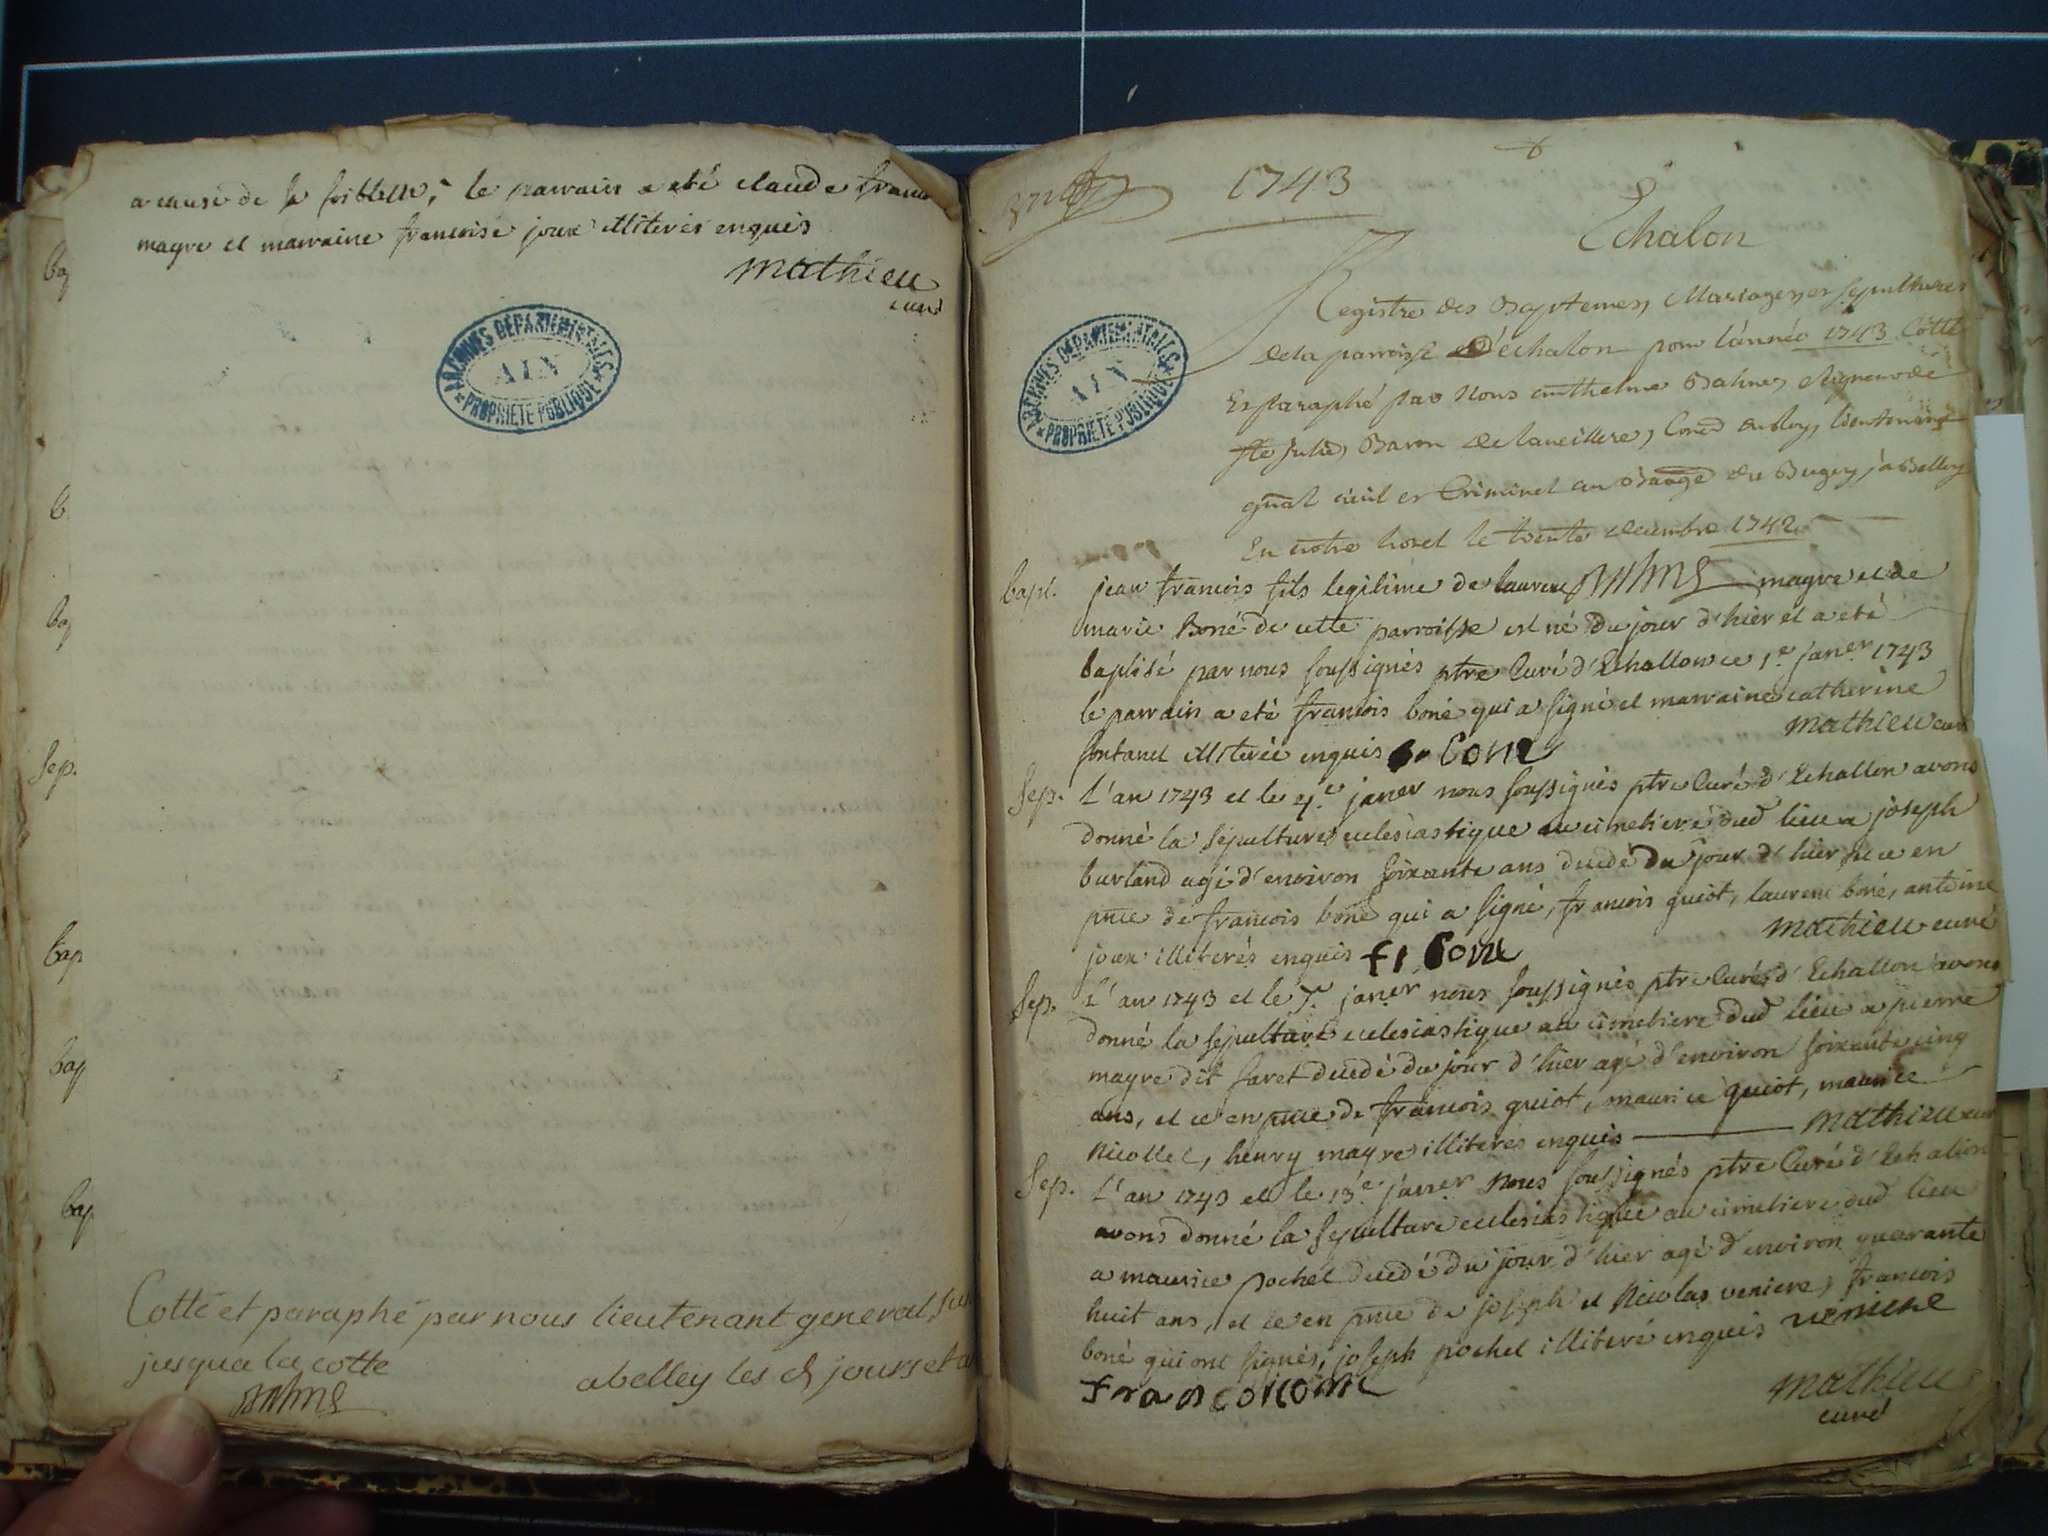 a cause de sa foiblesse, le parrain a eté claude franc
magre et marraine francoise joux illiterés enquis
mathieu
curé
ARCHIVES DÉPARTEMENTALES
AIN
PROPRIÉTÉ PUBLIQUE
bap
b
bap
Sep.
bap
bap
bap
Cotté et paraphé par nous lieutenant general
jusqua la cotte
abelley les d jours et a
1743
Echalon
Registre des Baptemes, Mariages, et sepultures
de la parroisse d'échalon pour l'année 1743 Cotté
Et paraphé par Nous anthelme Balme, seigneur de
ste Julie, Baron de Coned du Roy, lieutenant
gnal civil et Criminel au Baage du Bugey, a Belley
En notre hotel le trente decembre 1742
ARCHIVES DÉPARTEMENTALES
AIN
PROPRIÉTÉ PUBLIQUE
bapt. jean francois fils legitime de laurent Balme magre et de
marie Boné de cette parroisse est né du jour d'hier et a eté
baptisé par nous soussignés ptre Curé d'Echallon ce 1.e janer 1743
le parrain a eté francois boné qui a signé et marraine catherine
fontanel illiterée enquis fr Bone mathieu curé
Sep. L'an 1743 et le 4.e janer nous soussignés ptre Curé d'Echallon avons
donné la sepulture eclesiastique au cimetiere dud lieu a joseph
burland agé d'environ soixante ans decedé du jour d'hier et ce en
pnce de francois boné qui a signé, francois guiot, laurent boné, antoine
joux illiterés enquis fr Bone mathieu curé
Sep. L'an 1743 et le 7.e janer nous soussignés ptre Curé d'Echallon avons
donné la sepulture eclesiastique au cimetiere dud lieu a pierre
magre dit faret decedé du jour d'hier agé d'environ soixante cinq
ans, et ce en pnce de francois guiot, maurice guiot, maurice
Nicollet, henry magre illiterés enquis mathieu curé
Sep. L'an 1743 et le 13.e janer Nous soussignés ptre Curé d'Echallon
avons donné la sepulture eclesiastique au cimetiere dud lieu
a maurice pochet decedé du jour d'hier agé d'environ quarante
huit ans, et ce en pnce de joseph et Nicolas veniere, francois
boné qui ont signés, joseph pochet illiteré enquis veniere
francoi bone mathieu
curé